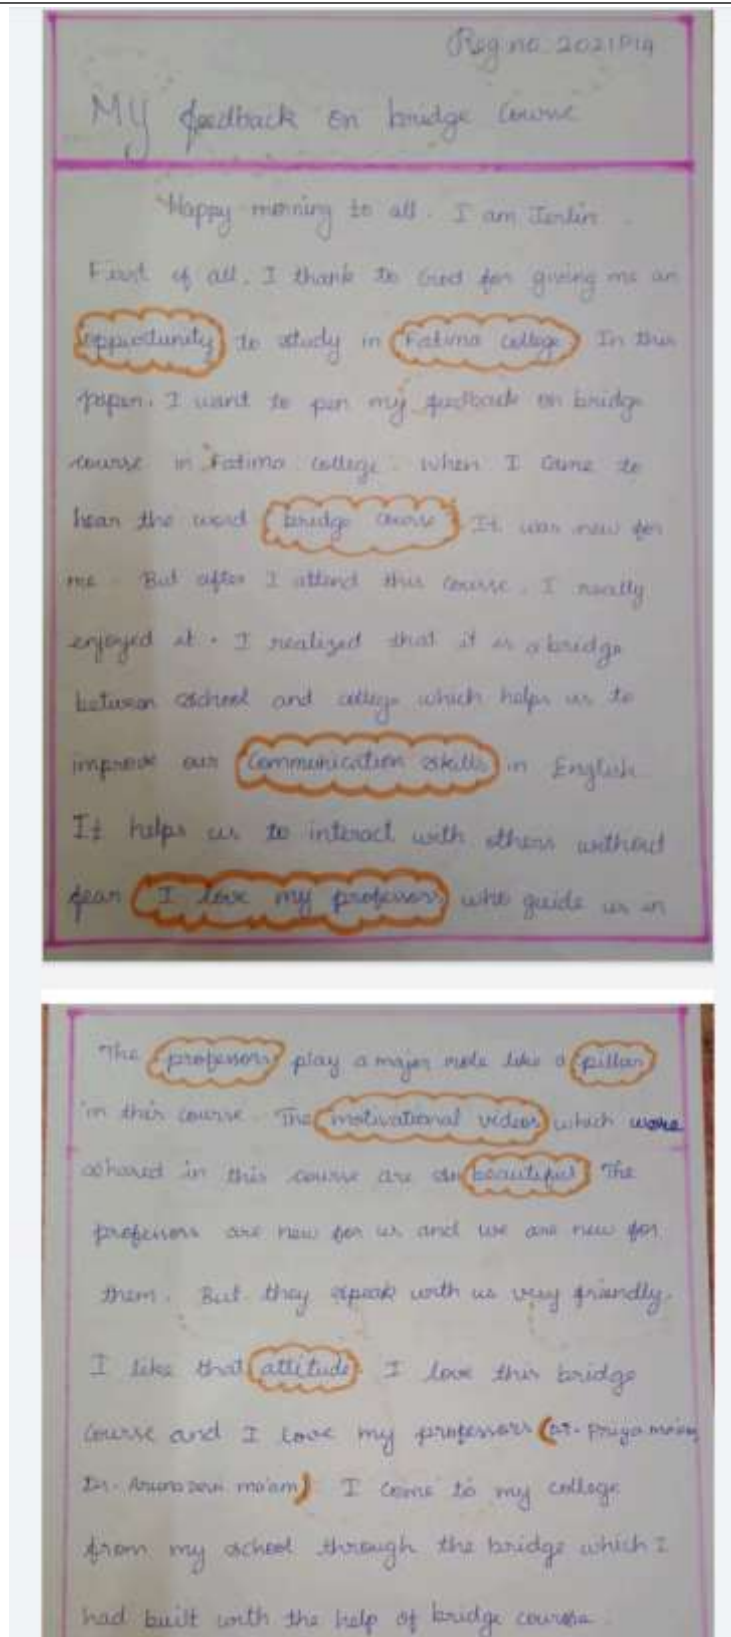 Reg no. 2021P19
My feedback on bridge course
Happy morning to all. I am Jenlin.
First of all, I thank to God for giving me an
opportunity to study in Fatima college. In this
paper, I want to pen my feedback on bridge
course in Fatima college. When I came to
hear the word bridge course. It was new for
me. But after I attend this course, I really
enjoyed it. I realized that it is a bridge
between school and college which helps us to
improve our Communication skills in English.
It helps us to interact with others without
fear. I love my professors who guide us in
The professors play a major role like a pillar
in this course. The motivational videos which were
shared in this course are so beautiful. The
professors are new for us and we are new for
them. But they speak with us very friendly.
I like that attitude. I love this bridge
course and I love my professors (Dr. Priya ma'am,
Dr. Aruna Devi ma'am) I came to my college
from my school through the bridge which I
had built with the help of bridge course.